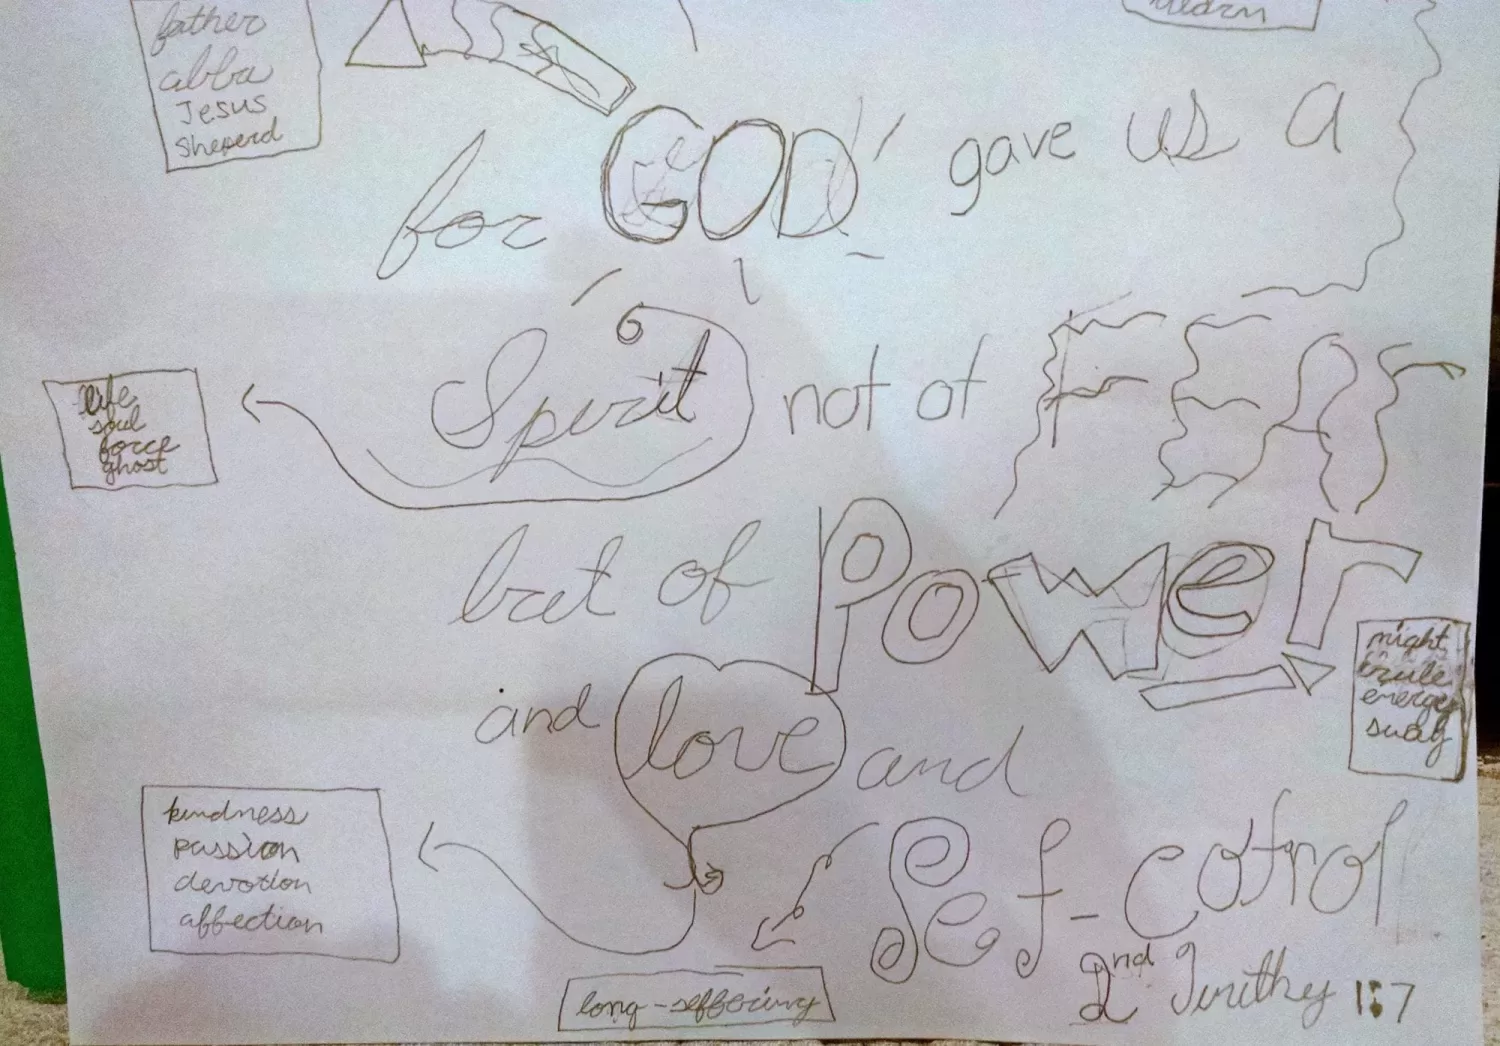 father
abba
Jesus
Sheperd
for GOD gave us a
Spirit not of FEAR
life
soul
force
ghost
but of Power
might
rule
energy
sway
and love and
kindness
passion
devotion
affection
Sef-cotrol
long-seffering
2nd Timithy 1:7